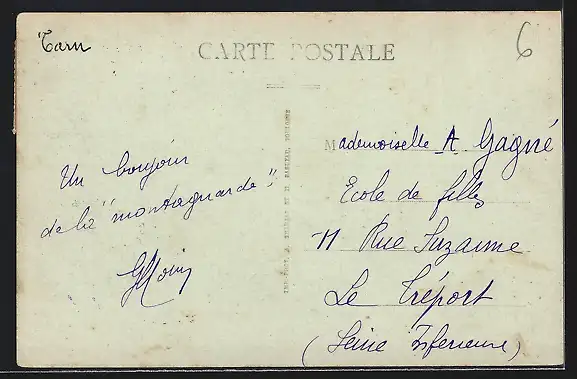 Tarn
CARTE POSTALE
6
Un bonjour
de la "montagnarde"
Mademoiselle A. Gagné
Ecole de filles
11 Rue Suzanne
Le Tréport
(Seine Inférieure)